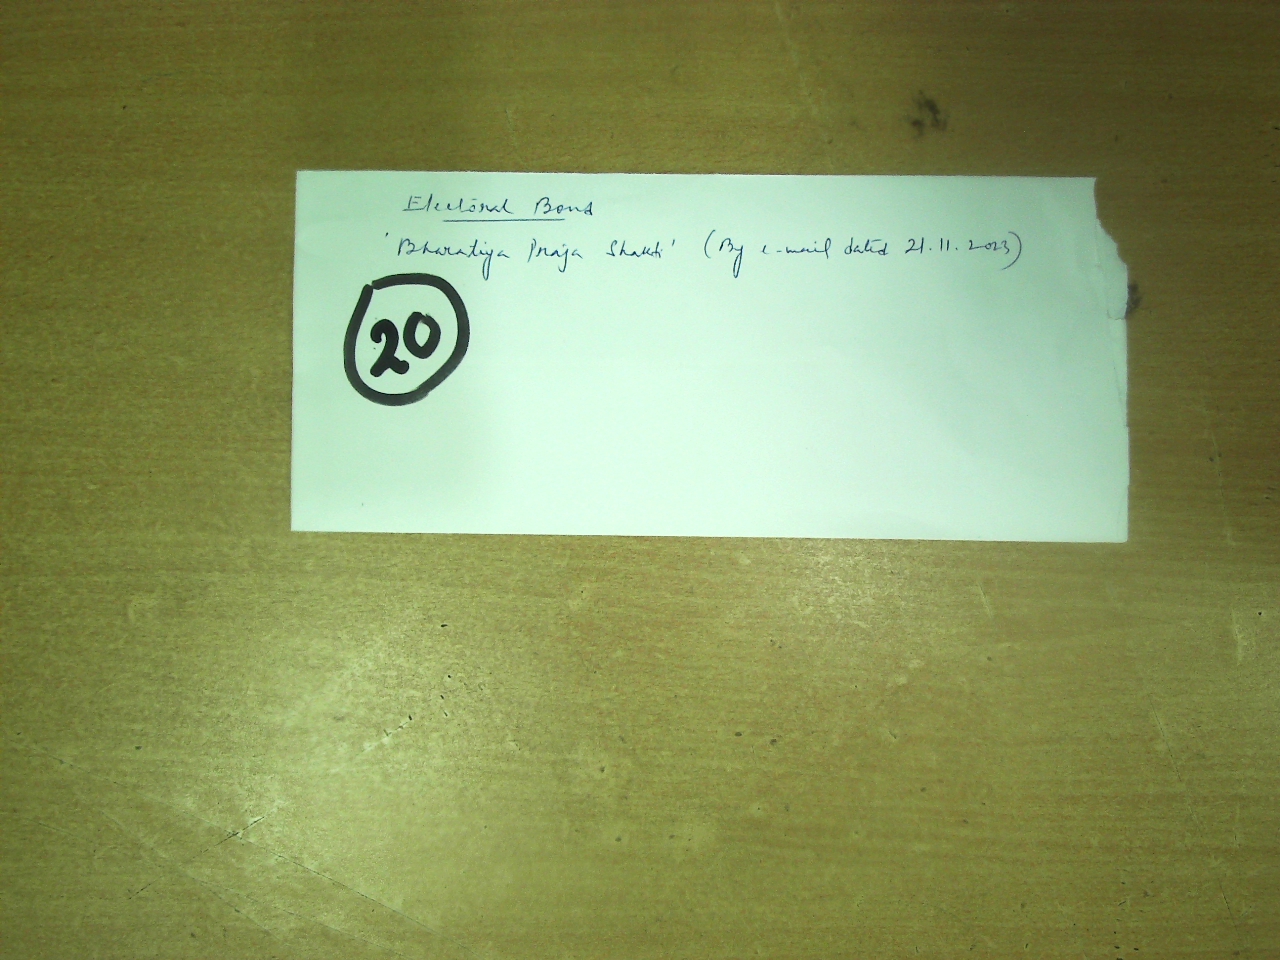 Electoral Bond
'Bharatiya Praja Shakti' (By e-mail dated 21.11.2023)
20